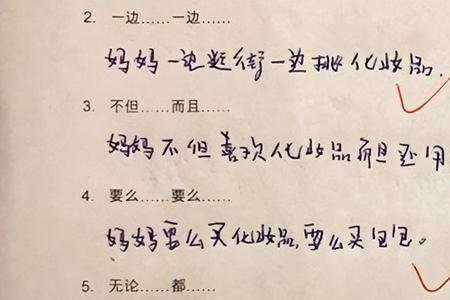 2. 一边……一边……
妈妈一边逛街一边挑化妆品.
3. 不但……而且……
妈妈不但喜欢化妆品而且还用
4. 要么……要么……
妈妈要么买化妆品,要么买包包。
5. 无论……都……